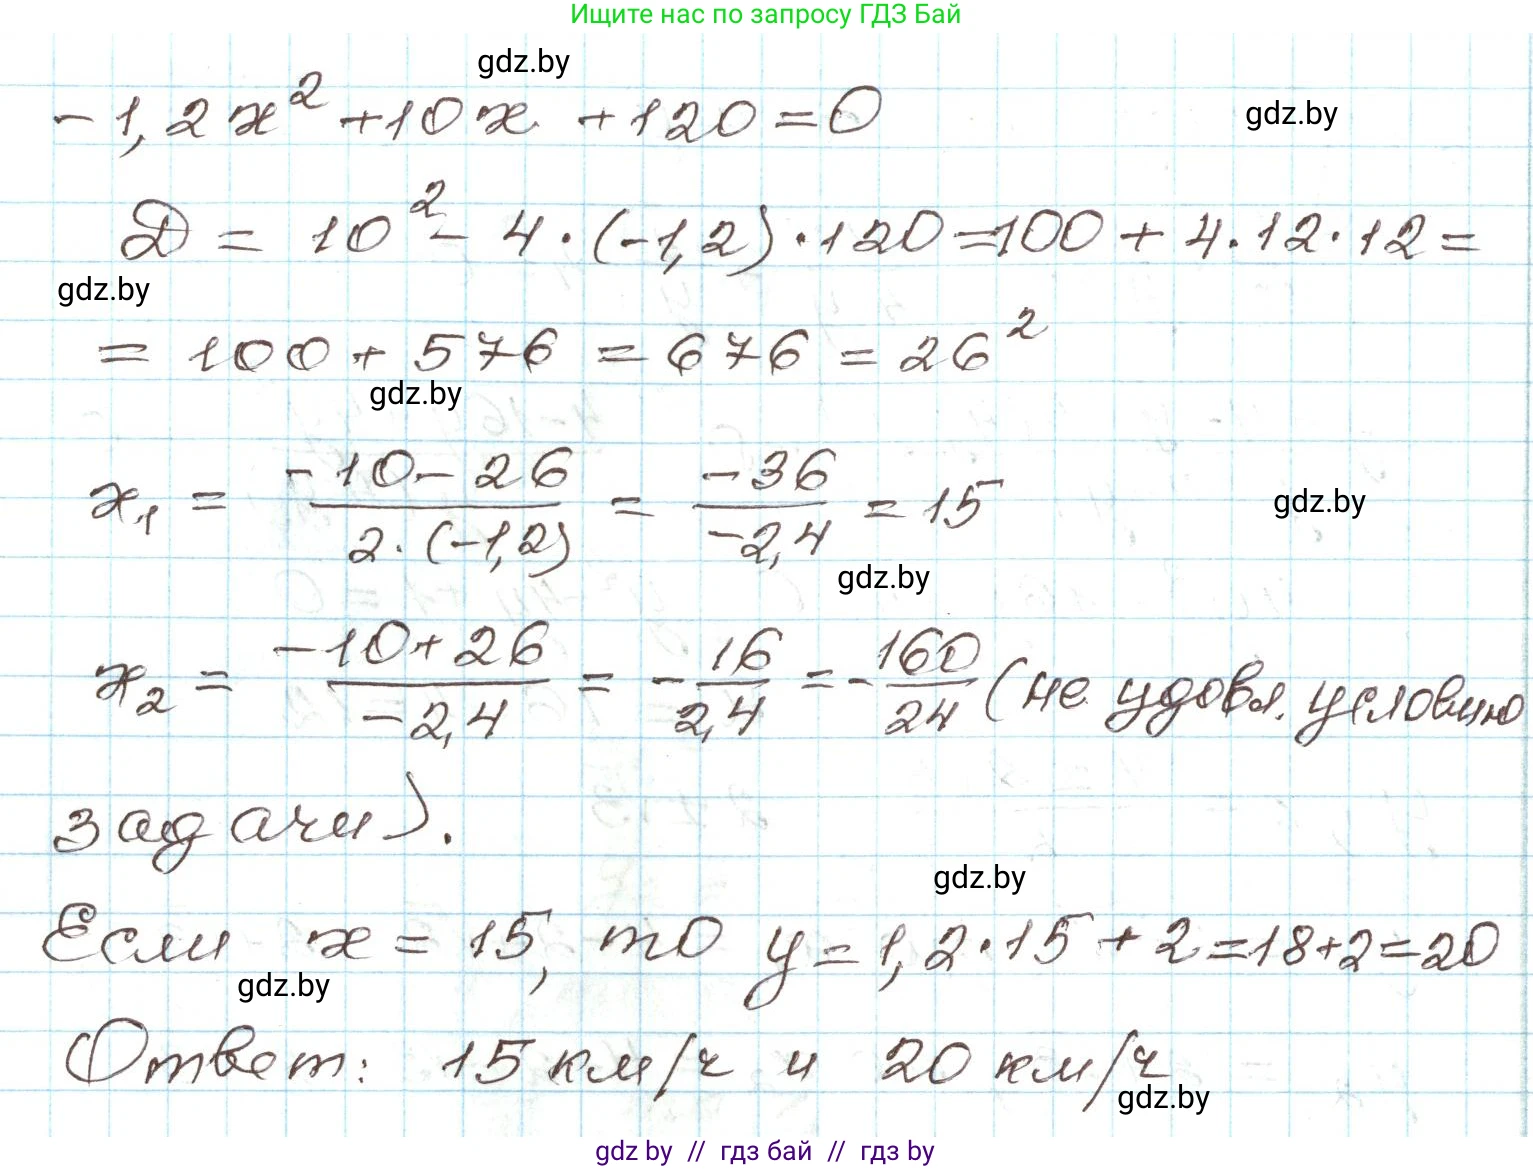 Ищите нас по запросу ГДЗ Бай
gdz.by
-1,2x² +10x +120=0
gdz.by
D = 10² - 4·(-1,2)·120=100 + 4·12·12 =
gdz.by
= 100 + 576 = 676 = 26²
gdz.by
x₁ = (-10-26)/(2·(-1,2)) = (-36)/(-2,4) = 15
gdz.by
gdz.by
x₂ = (-10+26)/(-2,4) = -16/2,4 = -160/24 (не удовл. условию
задачи).
gdz.by
Если x = 15, то y = 1,2·15 + 2 = 18+2=20
gdz.by
Ответ: 15 км/ч и 20 км/ч
gdz.by
gdz by // гдз бай // гдз by